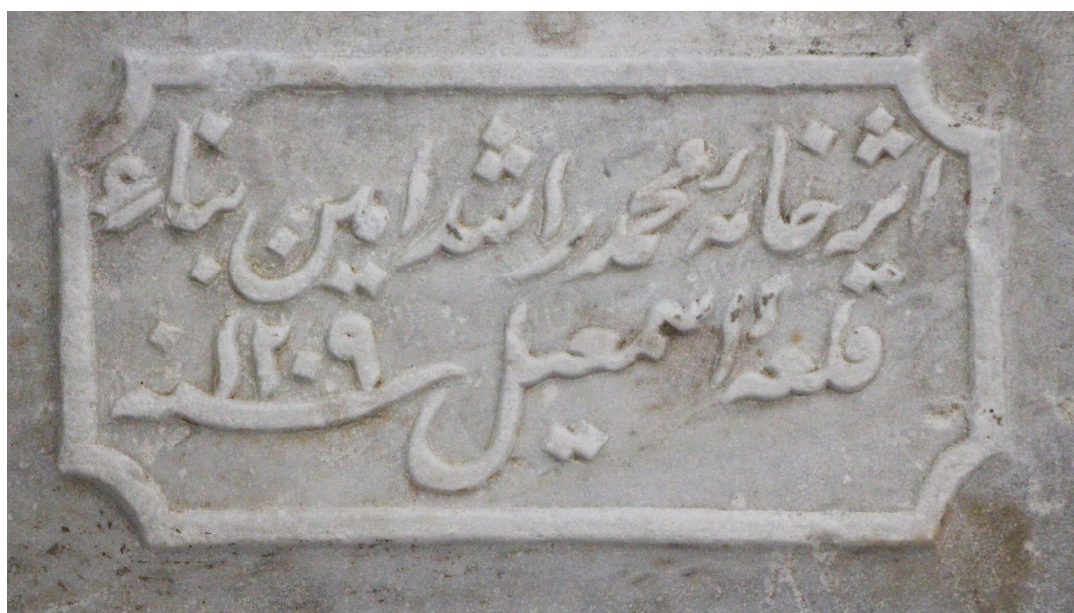 اثر خامهٔ محمد راشد امین بناء
قلعهٔ اسمعیل سنه ١٢٠٩